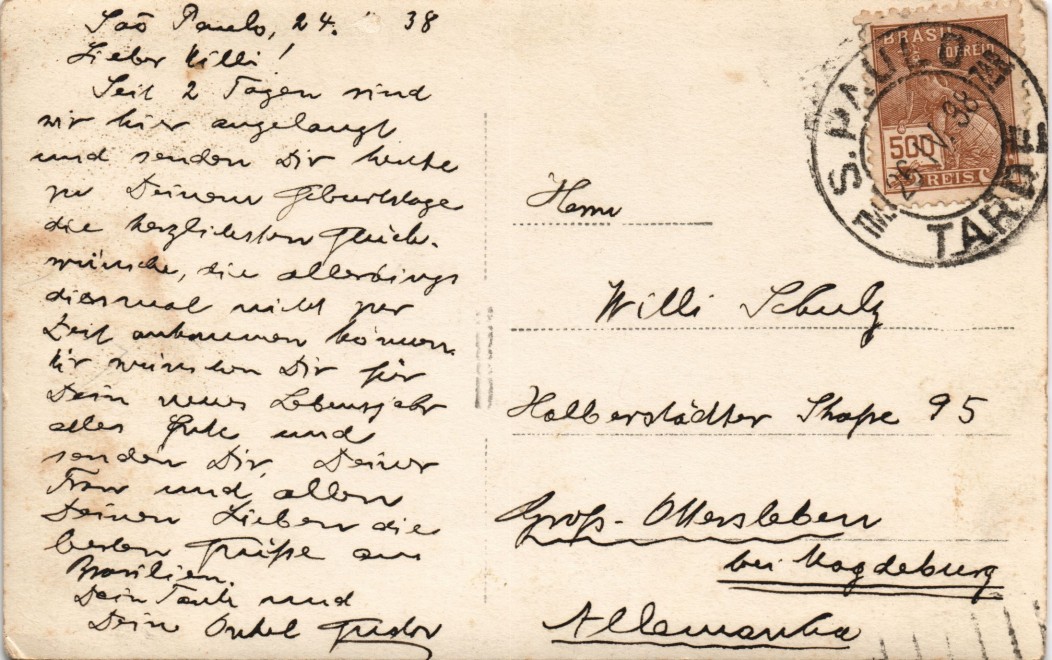 São Paulo, 24. 38
Lieber Willi!
Seit 2 Tagen sind
wir hier angelangt
und senden Dir heute
zu Deinem Geburtstage
die herzlichsten Glück-
wünsche, die allerdings
diesmal nicht zur
Zeit ankommen können.
Wir wünschen Dir für
Dein neues Lebensjahr
alles Gute und
senden Dir, Deiner
Frau und allen
Deinen Lieben die
besten Grüße aus
Brasilien.
Dein Tante und
Dein Onkel
BRASIL
CORREIO
500
REIS
S. PAULO
TARDE
Herrn
Willi Schulz
Halberstädter Straße 95
Groß-Ottersleben
bei Magdeburg
Allemanha